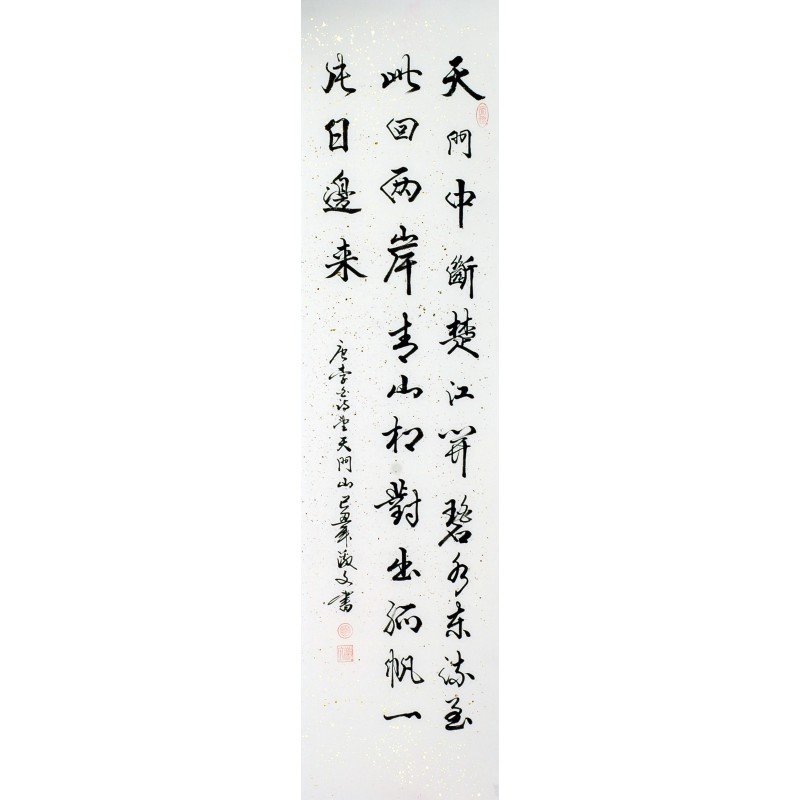 天門中斷楚江開碧水東流至
此回两岸青山相對出孤帆一
片日邊来
唐李白诗望天門山己丑年淑文書